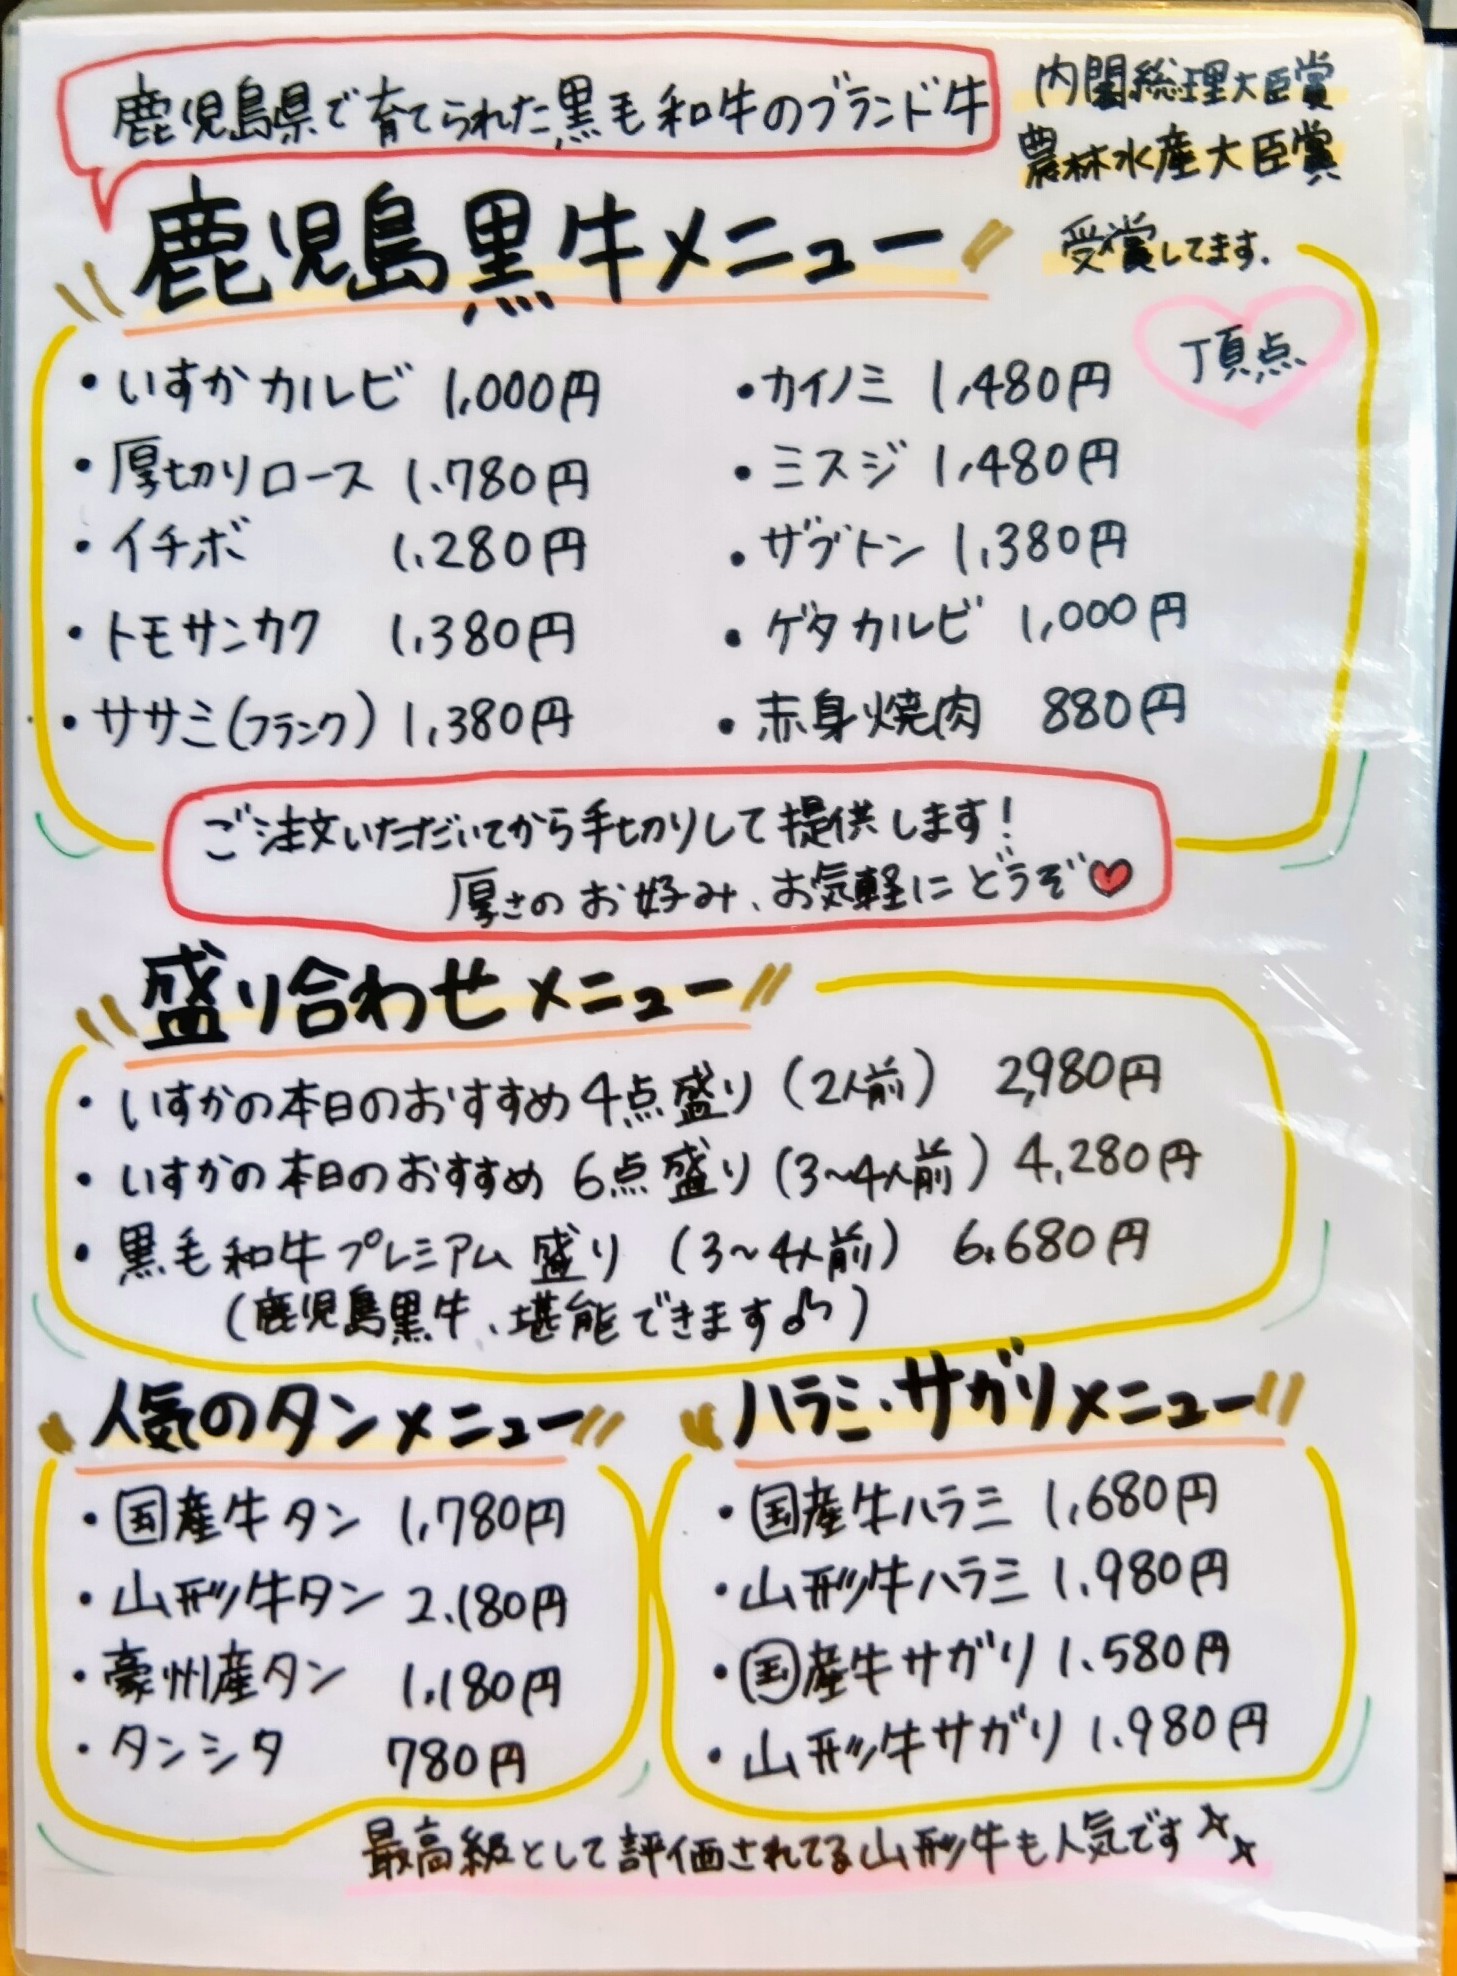 鹿児島県で育てられた黒毛和牛のブランド牛
内閣総理大臣賞
農林水産大臣賞
受賞してます.
頂点
鹿児島黒牛メニュー
・いすかカルビ 1,000円
・厚切りロース 1,780円
・イチボ 1,280円
・トモサンカク 1,380円
・ササミ(フランク) 1,380円
・カイノミ 1,480円
・ミスジ 1,480円
・ザブトン 1,380円
・ゲタカルビ 1,000円
・赤身焼肉 880円
ご注文いただいてから手切りして提供します!
厚さのお好み、お気軽にどうぞ♥
盛り合わせメニュー
・いすかの本日のおすすめ4点盛り(2人前) 2,980円
・いすかの本日のおすすめ 6点盛り(3~4人前) 4,280円
・黒毛和牛プレミアム盛り (3~4人前) 6,680円
(鹿児島黒牛、堪能できます♪)
人気のタンメニュー
・国産牛タン 1,780円
・山形牛タン 2,180円
・豪州産タン 1,180円
・タンシタ 780円
ハラミ・サガリメニュー
・国産牛ハラミ 1,680円
・山形牛ハラミ 1,980円
・国産牛サガリ 1,580円
・山形牛サガリ 1,980円
最高級として評価されてる山形牛も人気です☆☆